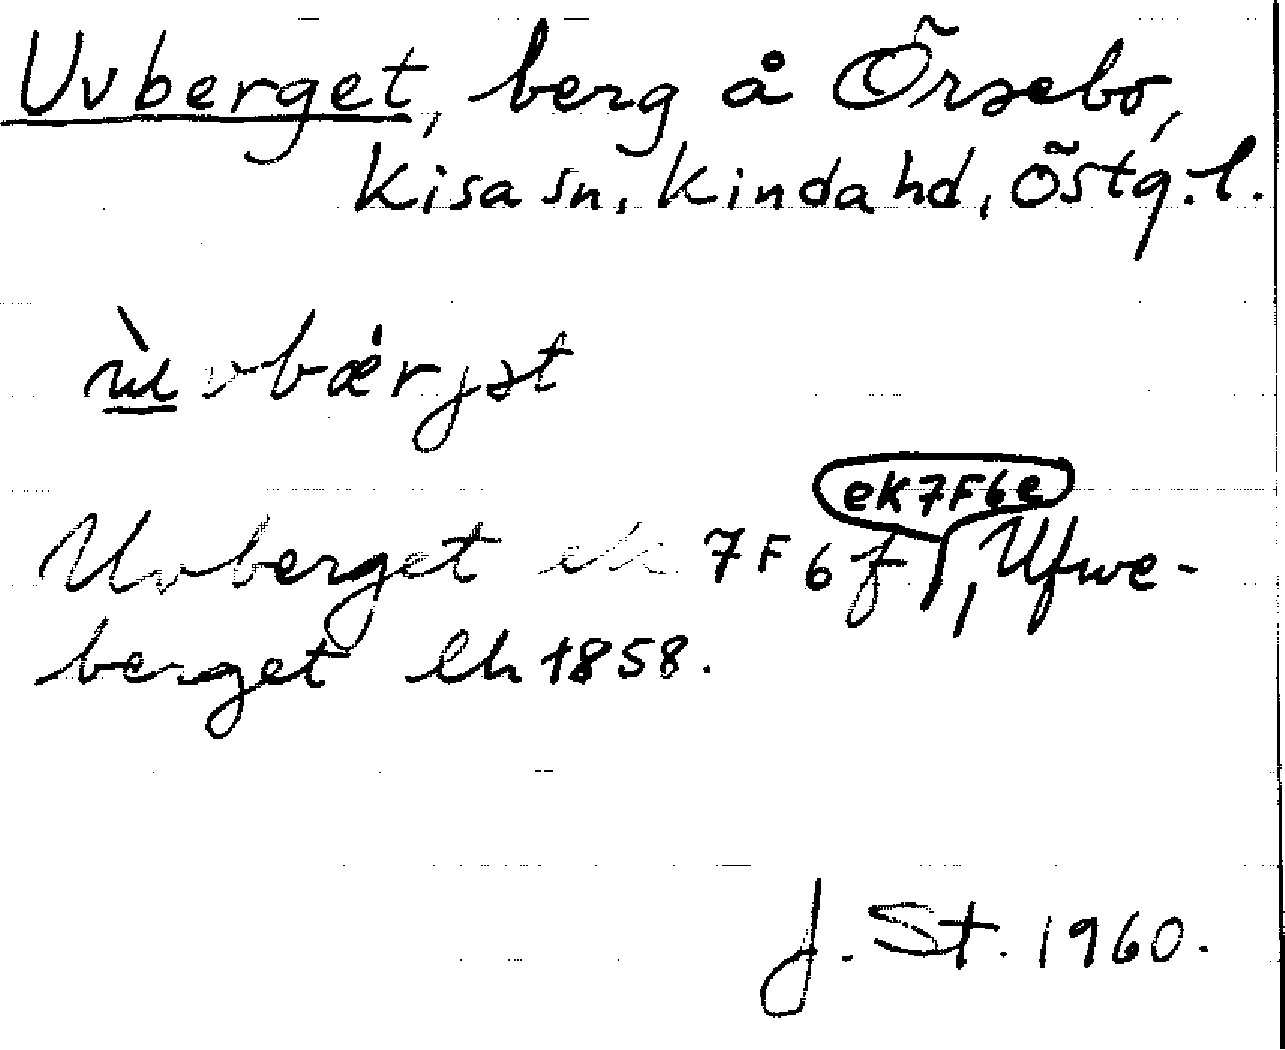 Uvberget, berg å Örsebo,
Kisa sn, Kinda hd, Östg. l.
ùvbǽrjət
Uvberget ek 7F6f ek7F6e, Ufwe-
berget lk 1858.
J. St. 1960.